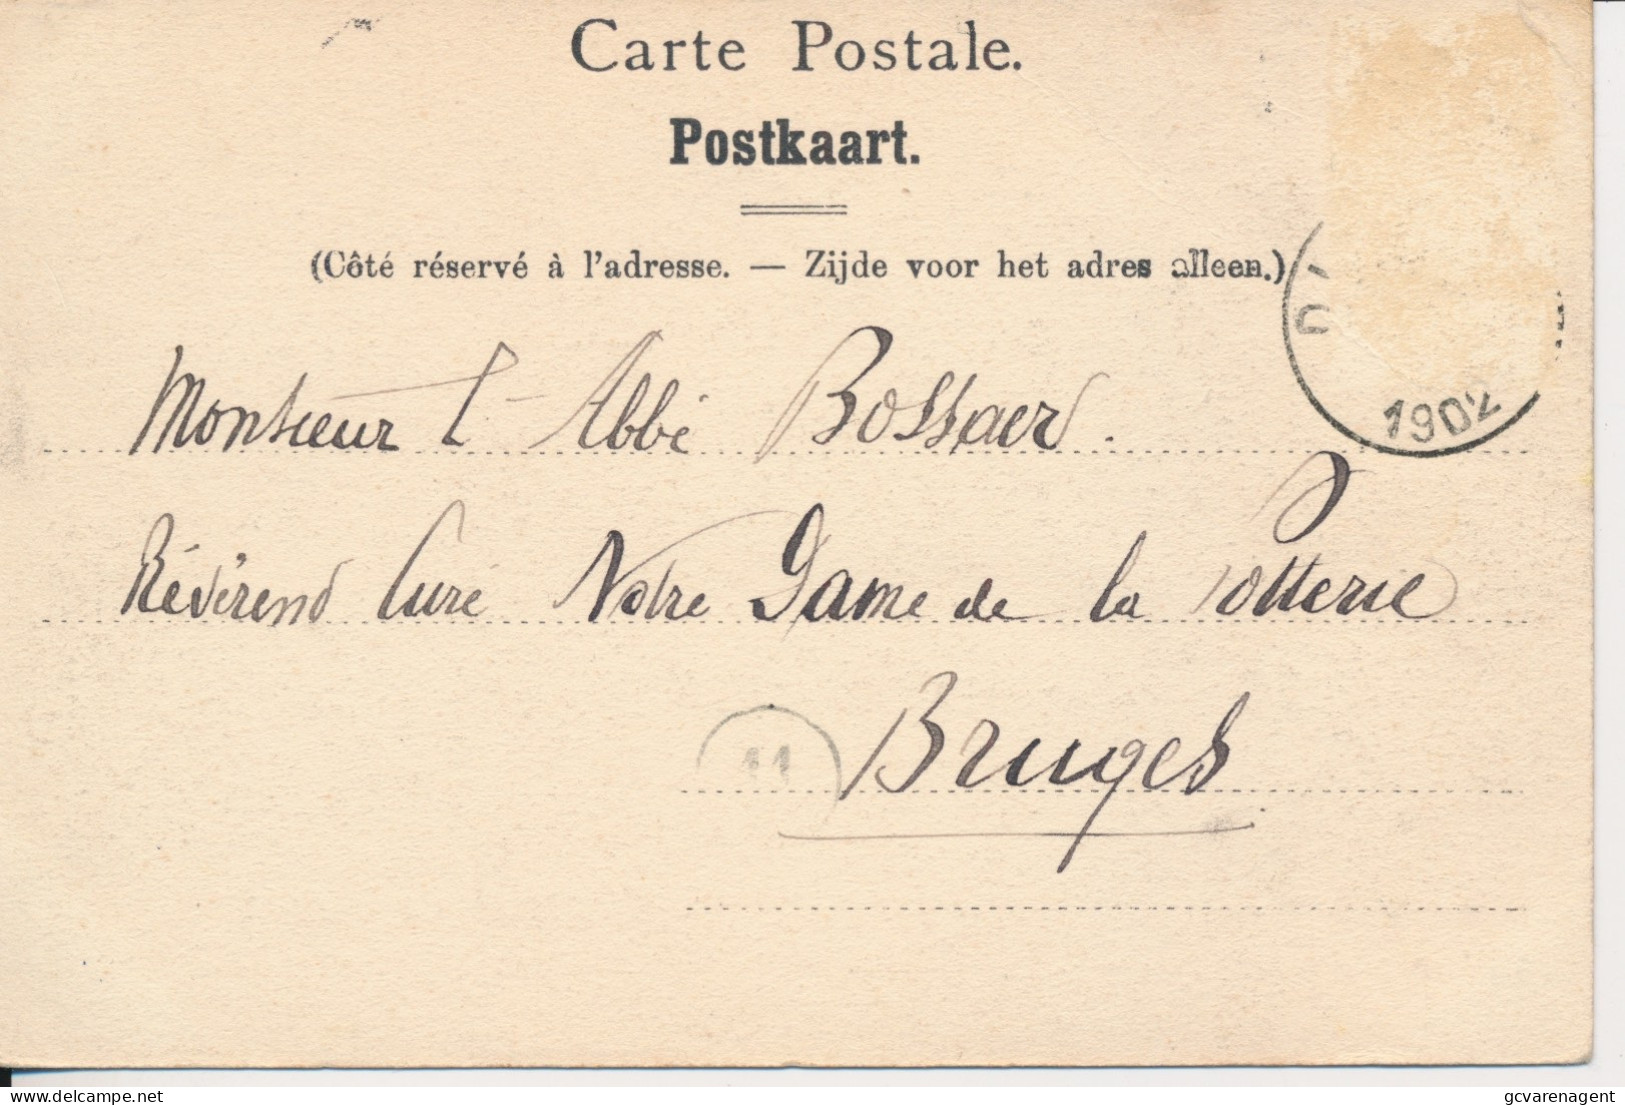 Carte Postale.
Postkaart.
(Côté réservé à l'adresse. — Zijde voor het adres alleen.)
1902
Monsieur l'Abbé Bossaer.
Révérend Curé Notre Dame de la Potterie
11
Bruges
delcampe.net
gcvarenagent